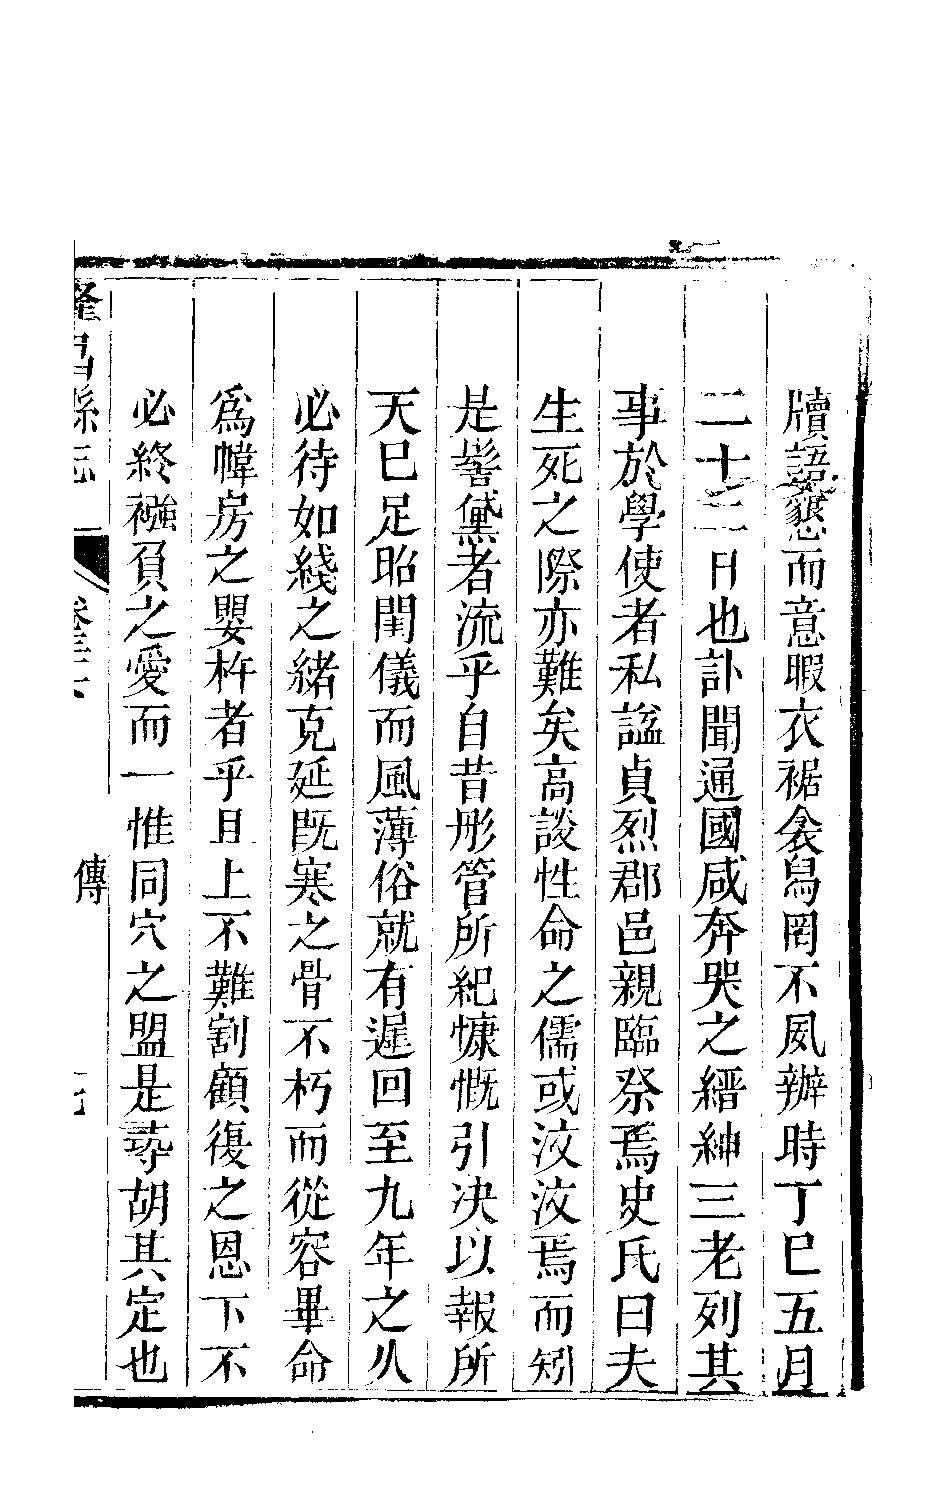 牘語懇而意暇衣裾衾舄罔不夙辦時丁巳五月
二十二日也訃聞通國咸奔哭之縉紳三老列其
事於學使者私謚貞烈郡邑親臨祭焉史氏曰夫
生死之際亦難矣高談性命之儒或汶汶焉而矧
是髻黛者流乎自昔彤管所紀慷慨引決以報所
天已足昭閨儀而風薄俗就有遲回至九年之久
必待如綫之緒克延既寒之骨不朽而從容畢命
爲幃房之嬰杵者乎且上不難割顧復之恩下不
必終襁負之愛而一惟同穴之盟是尋胡其定也
隆昌縣志
傳